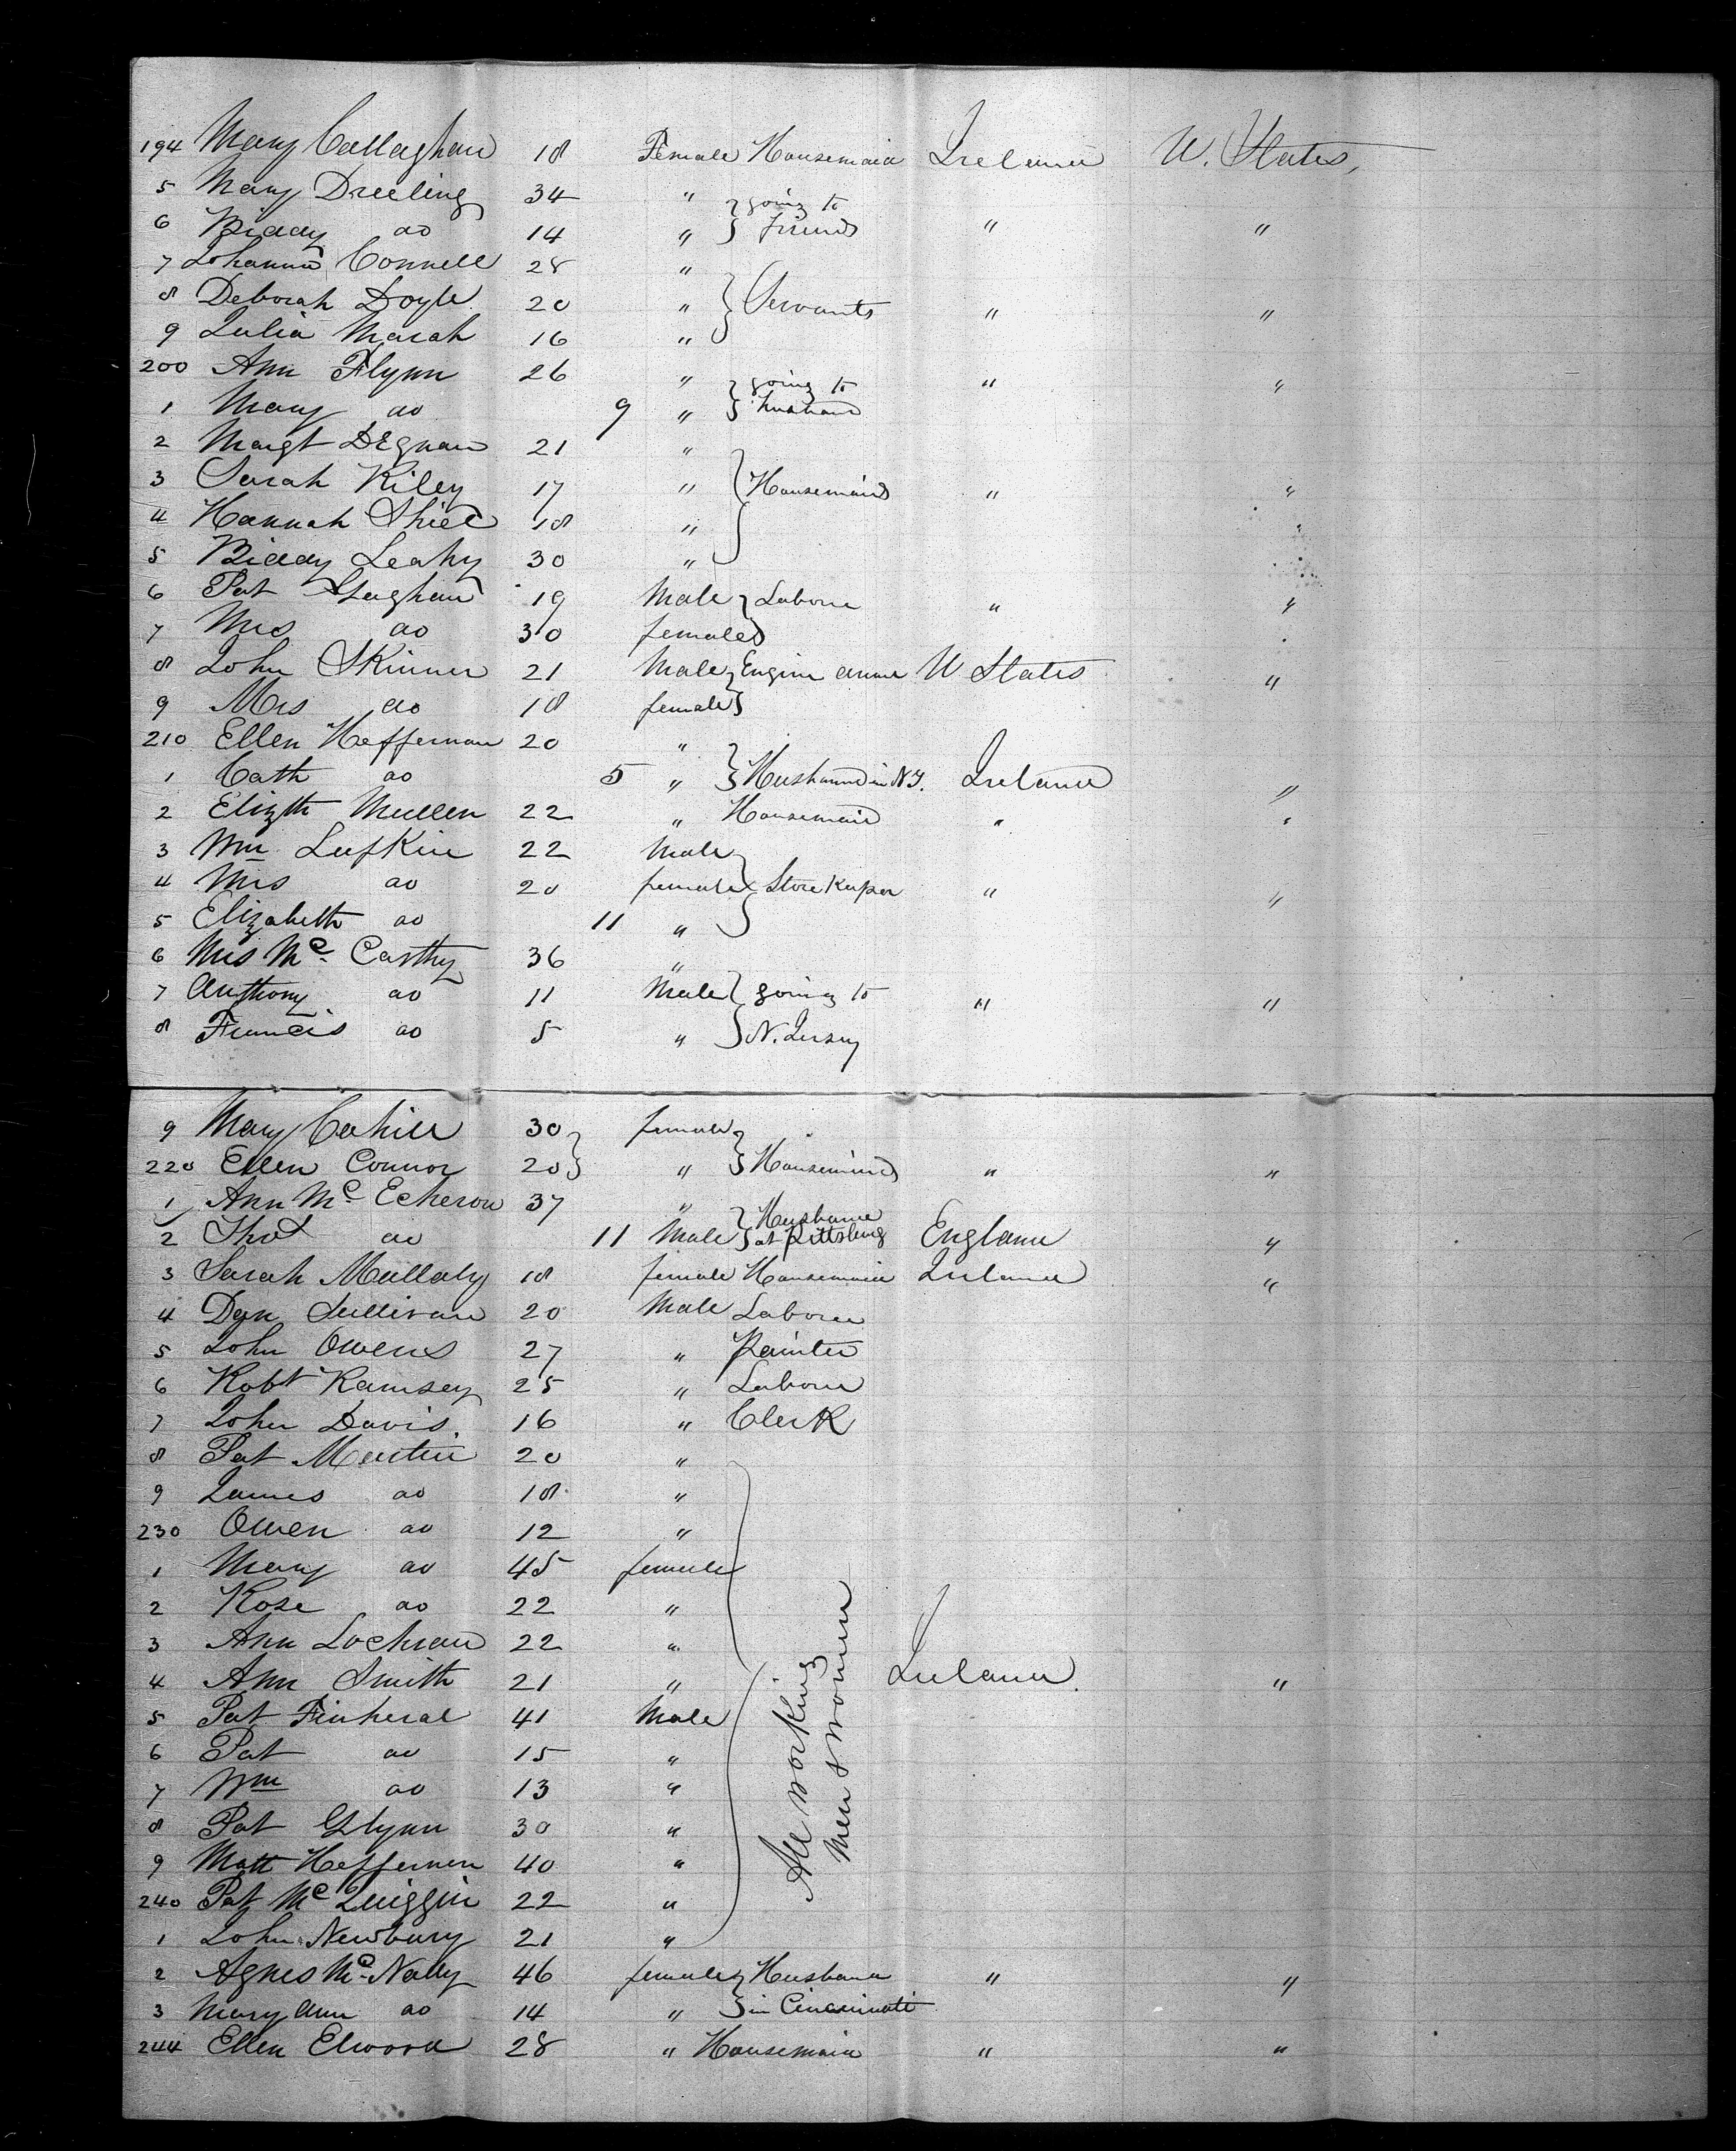 194 Mary Callaghan 18 Female Housemaid Ireland U. States,
5 Mary Dreeling 34 " going to
6 Biddy do 14 " Friends " "
7 Johanna Connell 28 "
8 Deborah Doyle 20 " Servants " "
9 Julia Marah 16 "
200 Ann Flynn 26 " going to " "
1 Mary do 9 " husband
2 Margt Degnan 21 "
3 Sarah Riley 17 " Housemaids " "
4 Hannah Shiel 18 " "
5 Biddy Leahy 30 "
6 Pat Geaghan 19 Male Labourer " "
7 Mrs do 30 female
8 John Skinner 21 Male Engine U States "
9 Mrs do 18 female
210 Ellen Heffernan 20 "
1 Cath do 5 " Husband in N Y. Ireland "
2 Elizth Mullen 22 " Housemaid " "
3 Wm Lufkin 22 Male
4 Mrs do 20 female Store Keeper " "
5 Elizabeth do 11 "
6 Mrs McCarthy 36 "
7 Anthony do 11 Male going to " "
8 Francis do 5 " N. Jersey
9 Mary Cahill 30 female
220 Ellen Connor 20 " Housemaids " "
1 Ann McEcheron 37 " Husband
2 Thos do 11 Male at Pittsburg England "
3 Sarah Mullaly 18 female Housemaid Ireland "
4 Dan Sullivan 20 Male Labourer
5 John Owens 27 " Painter
6 Robt Ramsey 25 " Labourer
7 John Davis. 16 " Clerk
8 Pat Martin 20 "
9 James do 18 "
230 Owen do 12 "
1 Mary do 45 female
2 Rose do 22 "
3 Ann Lochran 22 "
4 Ann Smith 21 " All working Men & women Ireland. "
5 Pat Finheral 41 Male
6 Pat do 15 "
7 Wm do 13 "
8 Pat Glynn 30 "
9 Matt Heffernen 40 "
240 Pat McQuiggin 22 "
1 John Newbury 21 "
2 Agnes McNally 46 female Husband " "
3 Mary Ann do 14 " in Cincinnati
244 Ellen Elwood 28 " Housemaid " "